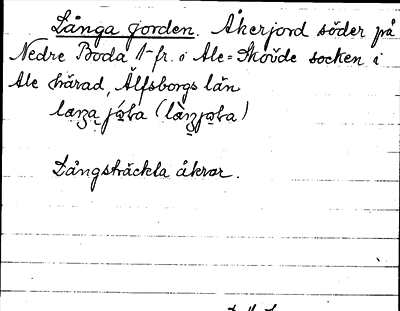 Långa jorden. Åkerjord söder på
Nedre Boda 1-fr. i Ale-Skövde socken i
Ale härad, Älfsborgs län
Långsträckta åkrar.